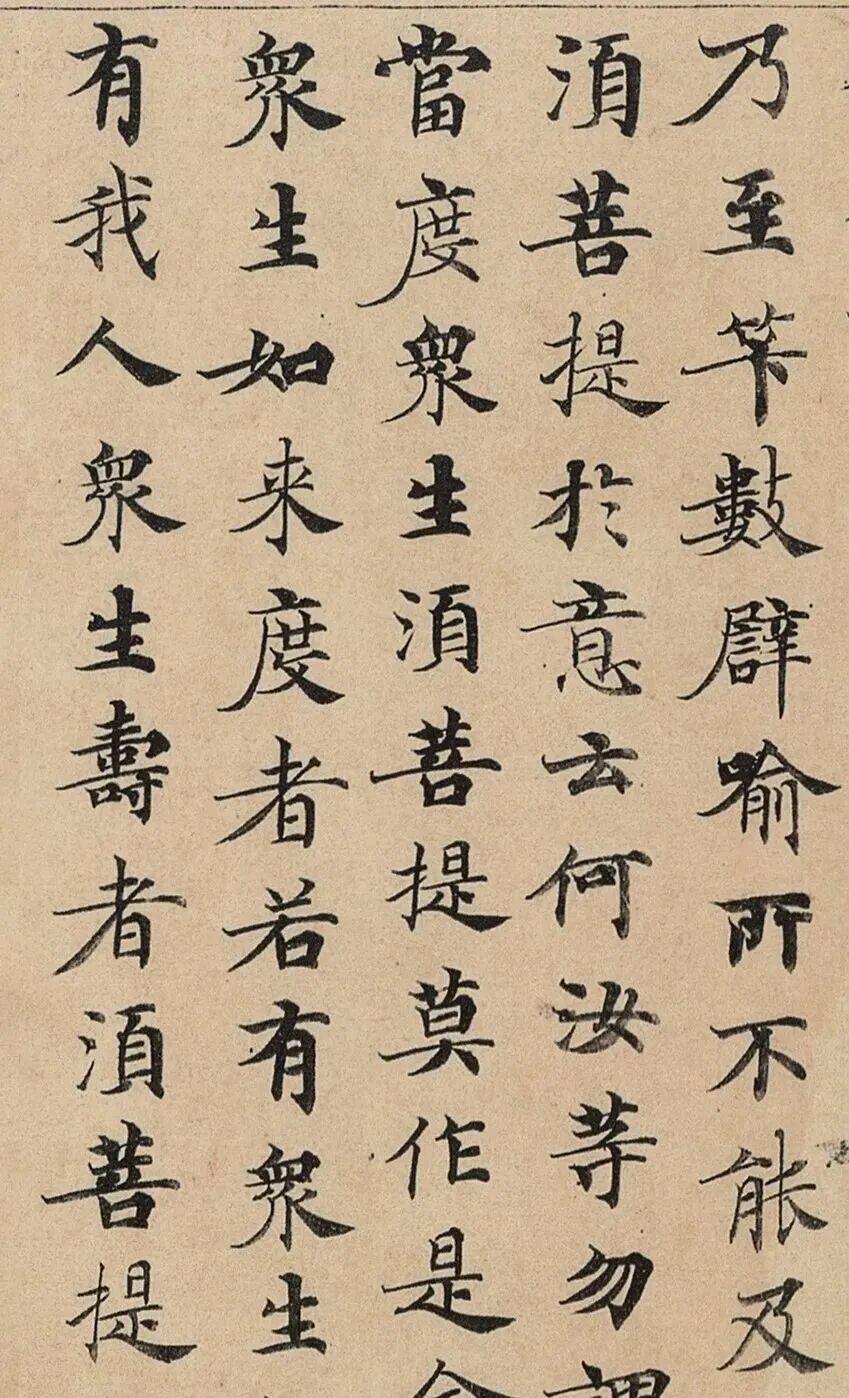 乃至笇數辟喻所不能及
湏菩提於意云何汝等勿
當度衆生湏菩提莫作是
衆生如来度者若有衆生
有我人衆生壽者湏菩提